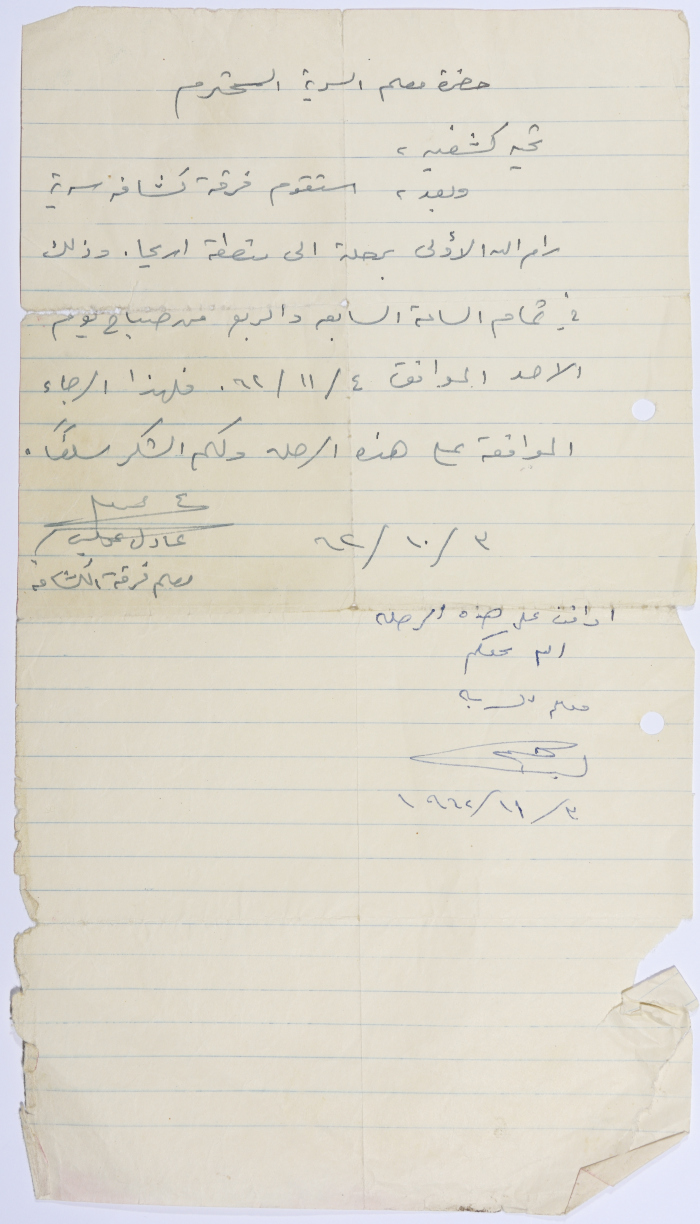 حضرة معلم السرية المحترم
تحيه كشفيه ،
وبعد ، ستقوم فرقة كشافه سرية
رام الله الأولى برحلة الى منطقة اريحا . وذلك
في تمام الساعة السابعه والربع من صباح يوم
الاحد الموافق ٤ / ١١ / ٦٢ . فلهذا الرجاء
الموافقة على هذه الرحله ولكم الشكر سلفًا .
٣ / ١٠ / ٦٢
عادل
معلم فرقة الكشافة
اوافق على هذه الرحله
معلم السريه
٣ / ١١ / ١٩٦٢